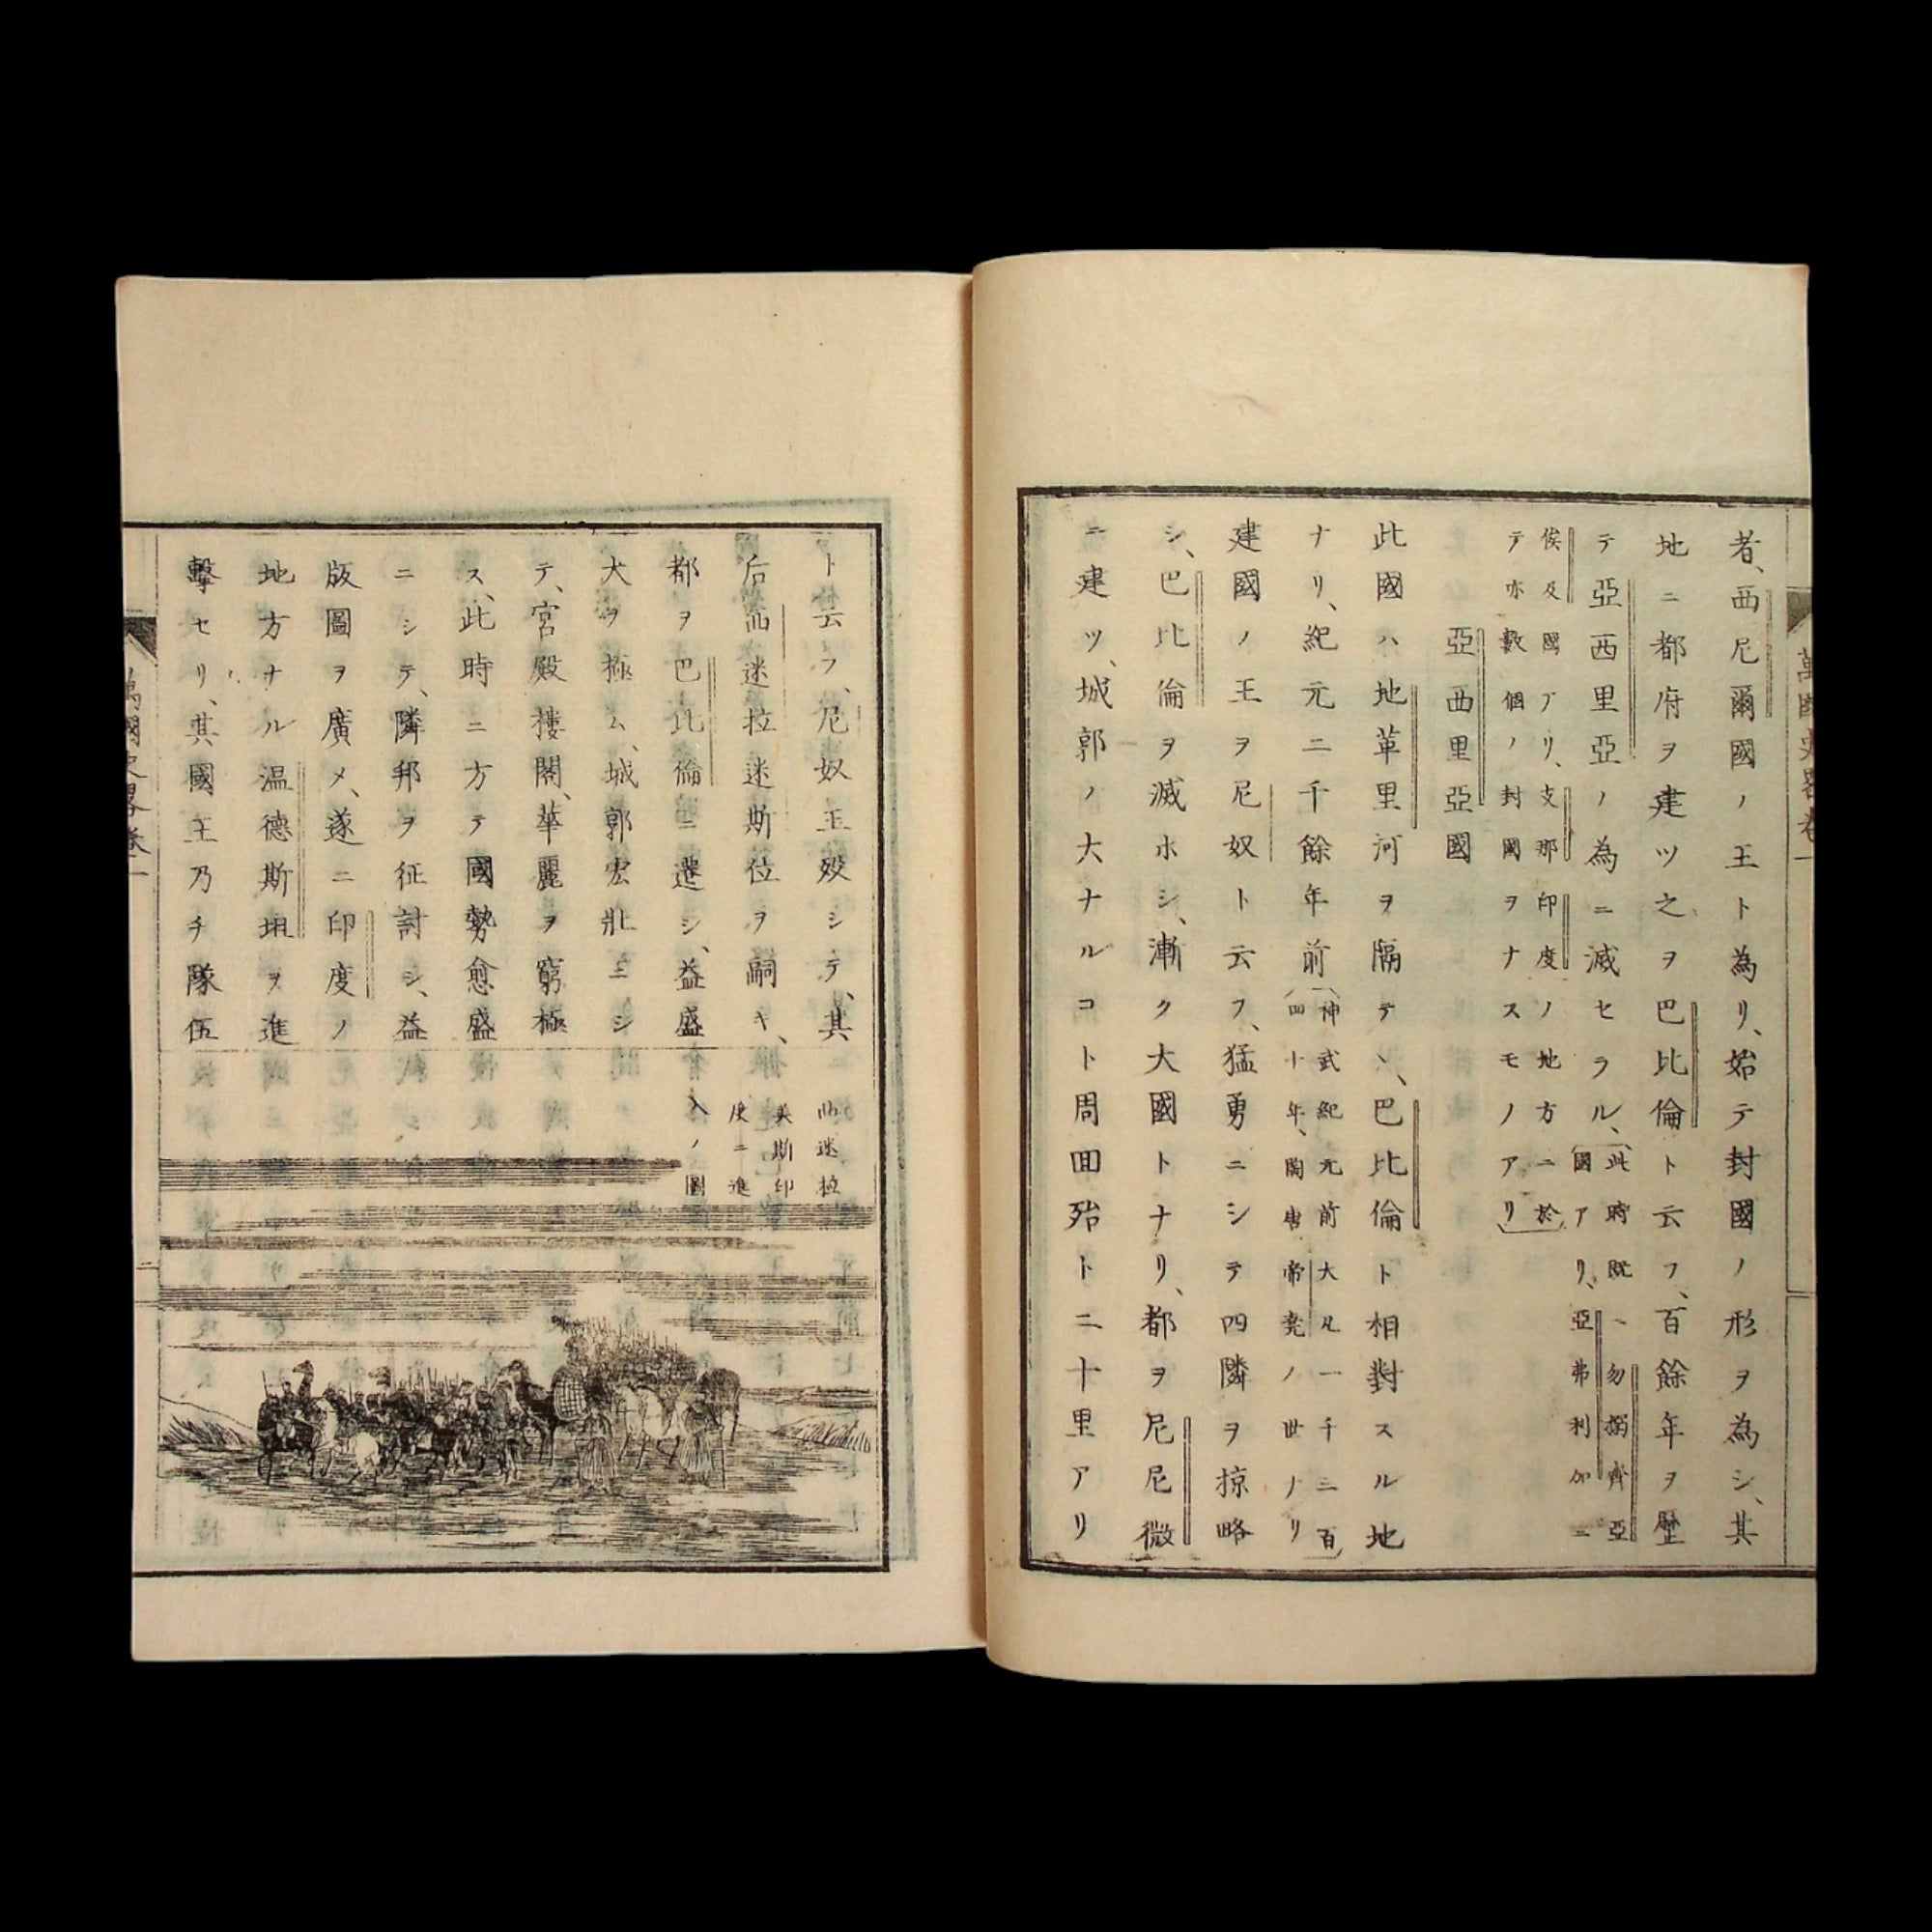 者、西尼爾國ノ王ト為リ、始テ封國ノ形ヲ為シ、其
地ニ都府ヲ建ツ之ヲ巴比倫ト云フ、百餘年ヲ歴
テ亞西里亞ノ為ニ滅セラル、
此時既ニ勿搦齊亞
國アリ、亞弗利加ニ
侯及國アリ、支那印度ノ地方ニ於
テ亦數個ノ封國ヲナスモノアリ
亞西里亞國
此國ハ地革里河ヲ隔テヽ、巴比倫ト相對スル地
ナリ、紀元二千餘年前
神武紀元前大凡一千三百
四十年、陶唐帝堯ノ世ナリ
建國ノ王ヲ尼奴ト云フ、猛勇ニシテ四隣ヲ掠略
シ、巴比倫ヲ滅ホシ、漸ク大國トナリ、都ヲ尼尼微
ニ建ツ、城郭ノ大ナルコト周囬殆ト二十里アリ
萬國史畧卷一
ト云フ、尼奴王歿シテ、其
后西迷拉迷斯位ヲ嗣キ、
都ヲ巴比倫ニ遷シ、益盛
大ヲ極ム、城郭宏壯ニシ
テ、宮殿樓閣、華麗ヲ窮極
ス、此時ニ方テ國勢愈盛
ニシテ、隣邦ヲ征討シ、益
版圖ヲ廣メ、遂ニ印度ノ
地方ナル温德斯坦ヲ進
擊セリ、其國王乃チ隊伍
西迷拉
美斯印
度ニ進
入ノ圖
萬國史畧卷一
二